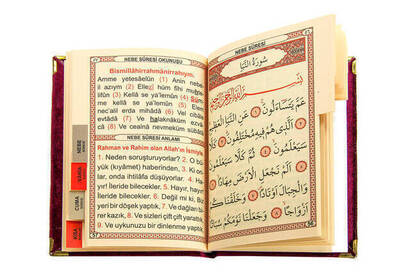 NEBE SÛRESİ OKUNUŞU
Bismillâhirrahmânirrahıym.
Amme yetesâelûn (1) Anin nebe
il azıym (2) Ellezî hüm fîhi muh
tilifûn (3) Kellâ se ya'lemûn (4) Süm
me kellâ se ya'lemûn (5) Elem
nec'alil erda mihâdâ (6) Vel cibâle
evtâdâ (7) Ve halaknâküm ezvâ
câ (8) Ve cealnâ nevmeküm sübâtâ
NEBE SÛRESİ ANLAMI
Rahman ve Rahim olan Allah'ın İsmiyle
1. Neden soruşturuyorlar? 2. O bü
yük (kıyâmet) haberinden, 3. Ki on
lar, onda ihtilâfa düşüyorlar. 4. Ha
yır! İleride bilecekler. 5. Hayır, hayır!
İleride bilecekler. 6. Değil mi ki, Biz
yeri bir döşek yaptık, 7. Ve dağları
birer kazık, 8. Ve sizleri çift çift yarattık.
9. Ve uykunuzu bir dinlenme yaptık
NEBE
CUMA
KISA
NEBE SÛRESİ
سُورَةُ النَّبَأِ
بِسْمِ اللهِ الرَّحْمٰنِ الرَّحِيمِ
عَمَّ يَتَسَاءَلُونَ ﴿١﴾ عَنِ النَّبَأِ الْعَظِيمِ
﴿٢﴾ اَلَّذِى هُمْ فِيهِ مُخْتَلِفُونَ ﴿٣﴾ كَلَّا
سَيَعْلَمُونَ ﴿٤﴾ ثُمَّ كَلَّا سَيَعْلَمُونَ
﴿٥﴾ اَلَمْ نَجْعَلِ الْاَرْضَ مِهَادًا ﴿٦﴾
وَالْجِبَالَ اَوْتَادًا ﴿٧﴾ وَخَلَقْنَاكُمْ
اَزْوَاجًا ﴿٨﴾ وَجَعَلْنَا نَوْمَكُمْ سُبَاتًا